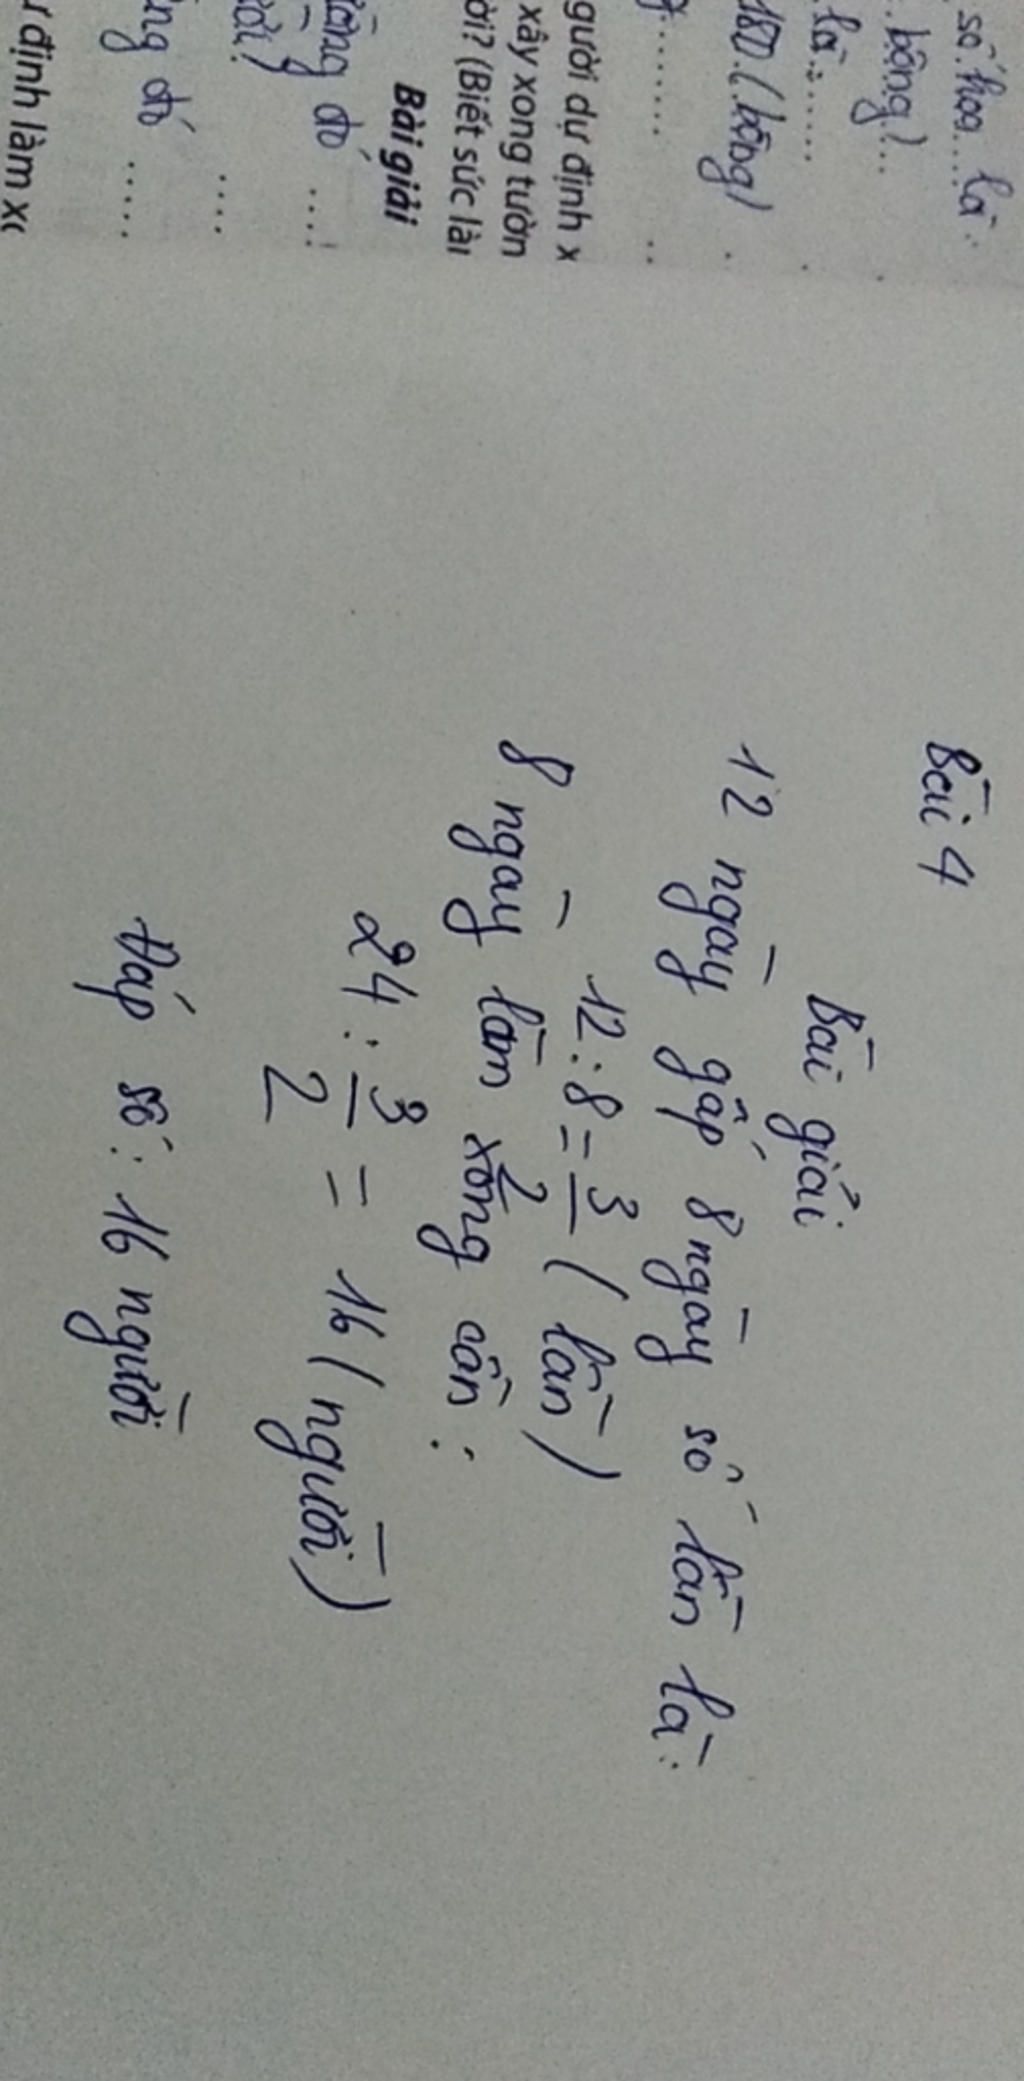 số hoa là
bông)
là:
180 (bông)
gười dự định x
xây xong tườn
ời? (Biết sức làı
Bài giải
đó
đó
ự định làm xo
Bài 4
Bài giải
12 ngày gấp 8 ngày số lần là:
12 : 8 = 3/2 ( lần )
8 ngày làm xong cần :
24 : 3/2 = 16 ( người )
Đáp số : 16 người